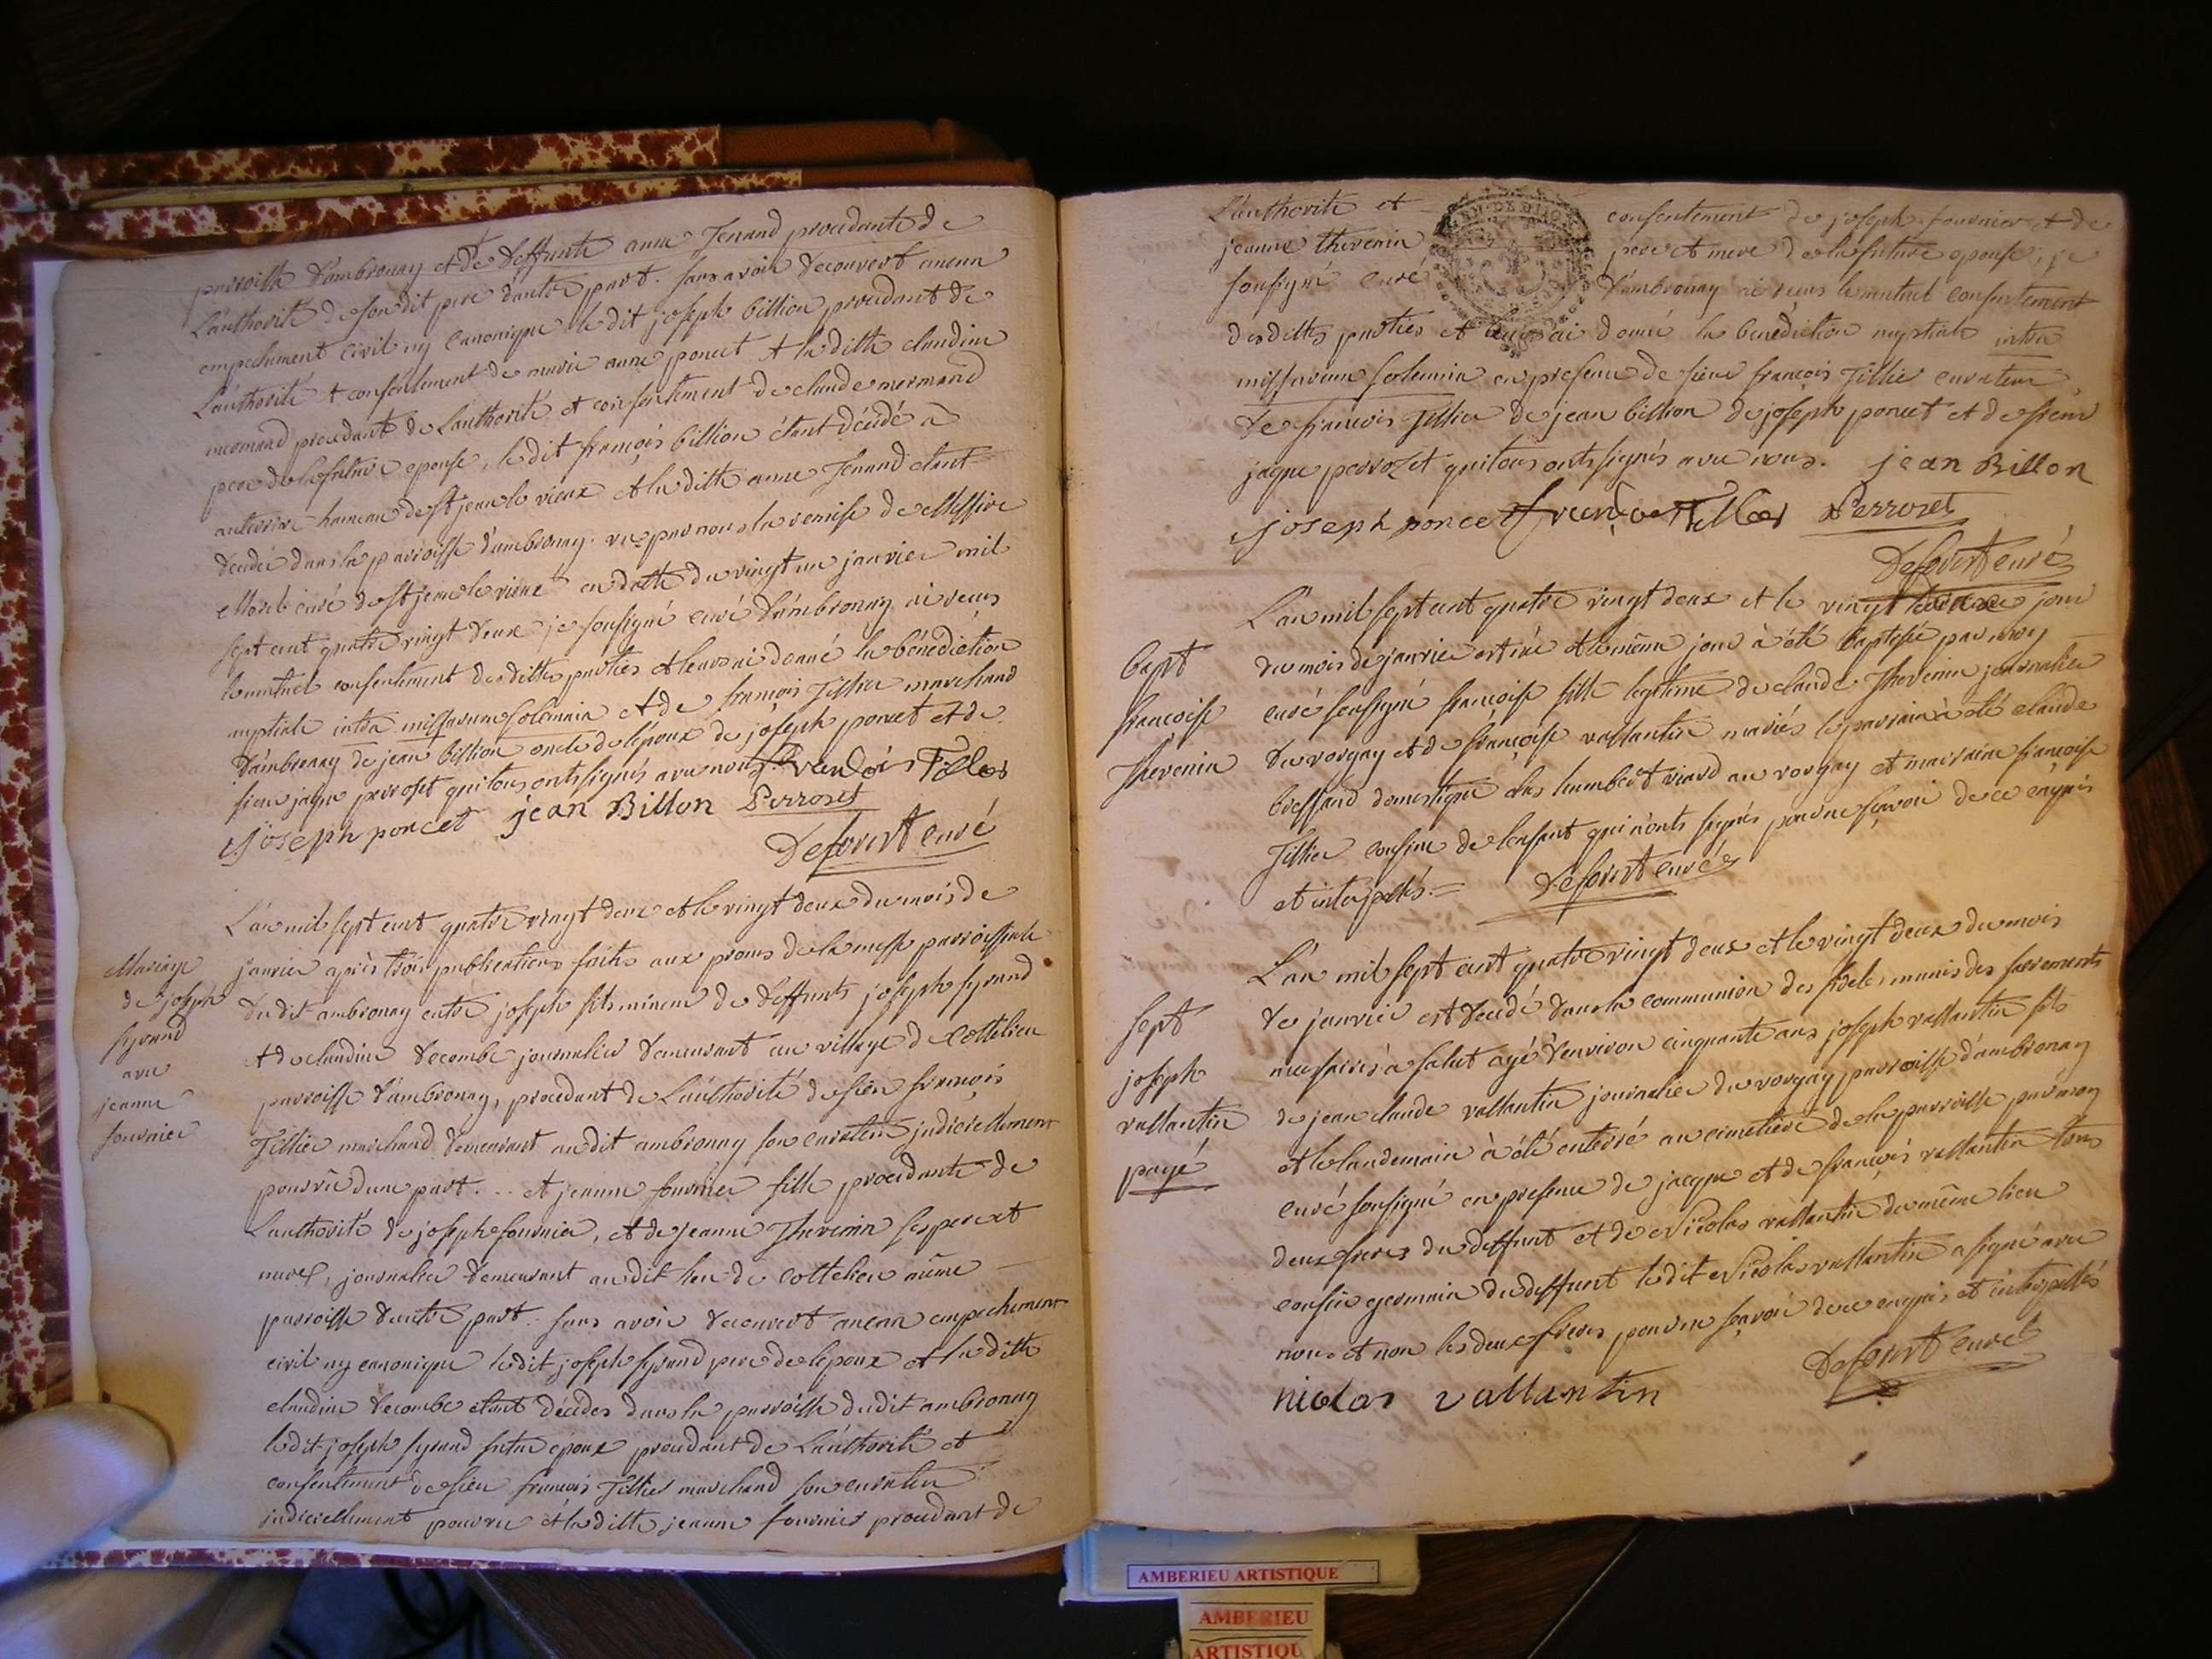 parroisse d'ambronay et de deffunte anne Jenand procedante de
L'authorité de son dit pere d'autre part. sans avoir decouvert aucun
empechement civil ny canonique le dit joseph billion procedant de
L'authorité et consentement de marie anne poncet et la ditte claudine
mermand procedant de L'authorité et consentement de claude mermand
pere de la future epouse, le dit françois billion étant décédé a
hameau de st jean le vieux et la ditte anne Jenand etant
décédée dans la parroisse d'ambronay. vu par nous la remise de Messire
Morel curé de st jean le vieux en datte du vingt un janvier mil
sept cent quatre vingt deux je soussigné curé d'ambronay ai reçus
le mutuel consentement des dittes parties et leurs ai donné la bénédiction
nuptiale intra missarum solemnia et de françois Tillier marchand
d'ambronay de jean billion oncle de l'epoux de joseph poncet et de
sieur jaque perroset qui tous onts signés avec nous. francois Tillier
joseph poncet jean Billon Perroset
Defovert curé
Mariage
de joseph
syrand
avec
jeanne
fournier
L'an mil sept cent quatre vingt deux et le vingt deux du mois de
janvier après trois publications faites aux prones de la messe parroissiale
du dit ambronay entre joseph fils mineur de deffunts joseph syrand
et de claudine decombe journalier demeurant au village de Cottelieu
parroisse d'ambronay, procedant de L'authorité de sieur françois
Tillier marchand demeurant au dit ambronay son curateur judiciellement
pourvu d'une part... et jeanne fournier fille procedante de
L'authorité de joseph fournier, et de jeanne Thevenin ses pere et
mere, journalier demeurant au dit lieu de Cottelieu même
parroisse d'autre part. sans avoir decouvert aucun empechement
civil ny canonique le dit joseph syrand pere de l'epoux et la ditte
claudine decombe etant décédés dans la parroisse du dit ambronay
le dit joseph syrand futur epoux procedant de L'authorité et
consentement de sieur françois Tillier marchand son curateur
judiciellement pourvu et la ditte jeanne fournier procedant de
L'authorité et consentement de joseph fournier et de
jeanne thevenin pere et mere de la future epouse; je
soussigné curé d'ambronay ai reçus le mutuel consentement
des dittes parties et leurs ai donné la benediction nuptiale intra
missarum solemnia en presence de sieur françois Tillier curateur
de françois Tillier de jean billion de joseph poncet et de sieur
jaque perroset qui tous onts signés avec nous. jean Billon
joseph poncet francois Tillier Perroset
Defovert curé
bapt
francoise
thevenin
L'an mil sept cent quatre vingt deux et le vingt jour
du mois de janvier est née et le même jour à été baptisée par moy
curé soussigné francoise fille legitime de claude Thevenin journalier
du vorgay et de françoise vallantin mariés le parrain à été claude
bressand domestique chés humbert viard au vorgay et marraine françoise
Tillier cousine de l'enfant qui n'onts signés pour ne sçavoir de ce enquis
et interpellés. Defovert curé
sept
joseph
vallantin
payé
L'an mil sept cent quatre vingt deux et le vingt deux du mois
de janvier est décédé dans la communion des fideles, munis des sacrements
necessaires à salut agé d'environ cinquante ans joseph vallantin fils
de jean claude vallantin journalier du vorgay parroisse d'ambronay
et le landemain à été enterré au cimetiere de la parroisse par moy
curé soussigné en presence de jacque et de françois vallantin tous
deux freres du deffunt et de Nicolas vallantin du même lieu
cousin germain du deffunt le dit Nicolas vallantin a signé avec
nous et non les deux freres pour ne sçavoir de ce enquis et interpellés
nicolas vallantin Defovert curé
EN. DE DIJON
AMBERIEU ARTISTIQUE
AMBERIEU
ARTISTIQU